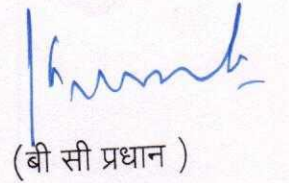 (बी सी प्रधान )